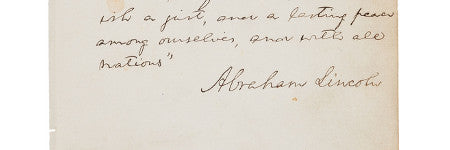 ish a just, and a lasting peace
among ourselves, and with all
nations"
Abraham Lincoln